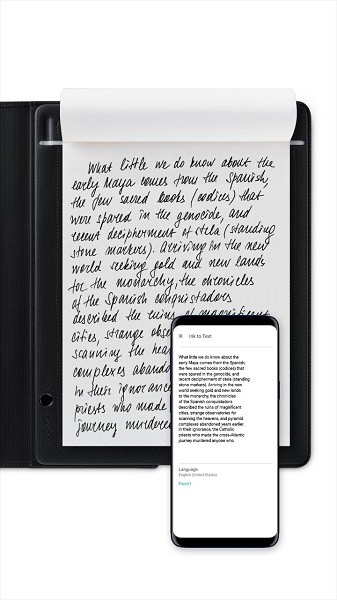 What little we do know about the
early Maya comes from the Spanish,
the few sacred books (codices) that
were spared in the genocide, and
recent decipherment of stela (standing
stone markers). Arriving in the new
world seeking gold and new lands
for the monarchy, the chronicles
of the Spanish conquistadors
described the ruins of magnificent
cities, strange obse
scanning the hea
complexes abando
in their ignorance
priests who made
journey murdered
× Ink to Text
What little we do know about the
early Maya comes from the Spanish,
the few sacred books (codices) that
were spared in the genocide, and
recent decipherment of stela (standing
stone markers). Arriving in the new
world seeking gold and new lands
to the monarchy, the chronicles
of the Spanish conquistadors
described the ruins of magnificent
cities, strange observatories for
scanning the heavens, and pyramid
complexes abandoned years earlier.
In their ignorance, the Catholic
priests who made the cross-Atlantic
journey murdered anyone who
Language
English (United States)
Export